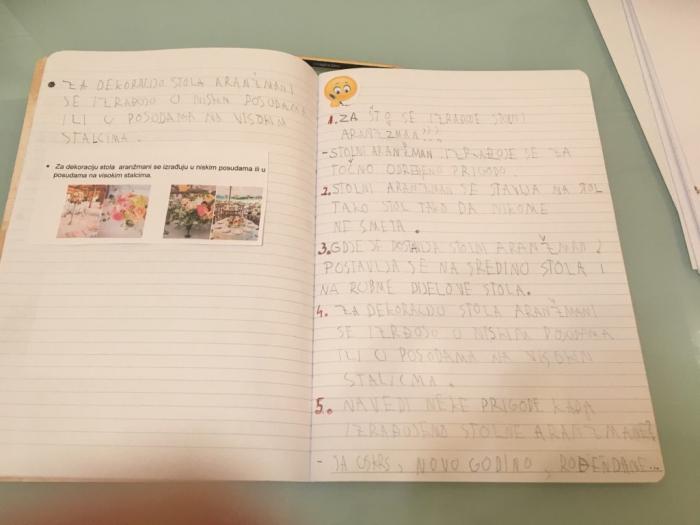 ZA DEKORACIJU STOLA ARANŽMANI
SE IZRAĐUJU U NISKIM POSUDAMA
ILI U POSUDAMA NA VISOKIM
STALCIMA.
Za dekoraciju stola aranžmani se izrađuju u niskim posudama ili u
posudama na visokim stalcima.
1. ZA ŠTO SE IZRAĐUJE STOLNI
ARANŽMAN???
- STOLNI ARANŽMAN IZRAĐUJE SE ZA
TOČNO ODREĐENU PRIGODU.
2. STOLNI ARANŽMAN SE STAVLJA NA STOL
TAKO STOL TAKO DA NIKOME
NE SMETA.
3. GDJE SE POSTAVLJA STOLNI ARANŽMAN?
POSTAVLJA SE NA SREDINU STOLA I
NA RUBNE DIJELOVE STOLA.
4. ZA DEKORACIJU STOLA ARANŽMANI
SE IZRAĐUJU U NISKIM POSUDAMA
ILI U POSUDAMA NA VISOKIM
STALICMA.
5. NAVEDI NEKE PRIGODE KADA
IZRAĐUJEMO STOLNE ARANŽMANE?
- ZA USKRS, NOVU GODINU, ROĐENDANE...